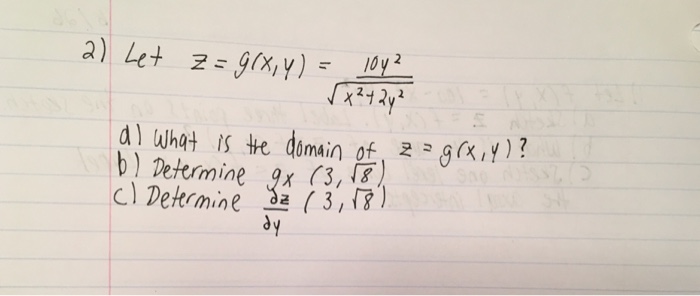 2) Let z = g(x,y) = 10y² / √x²+2y²
a) What is the domain of z = g(x,y)?
b) Determine gx (3,√8)
c) Determine ∂z/∂y (3,√8)